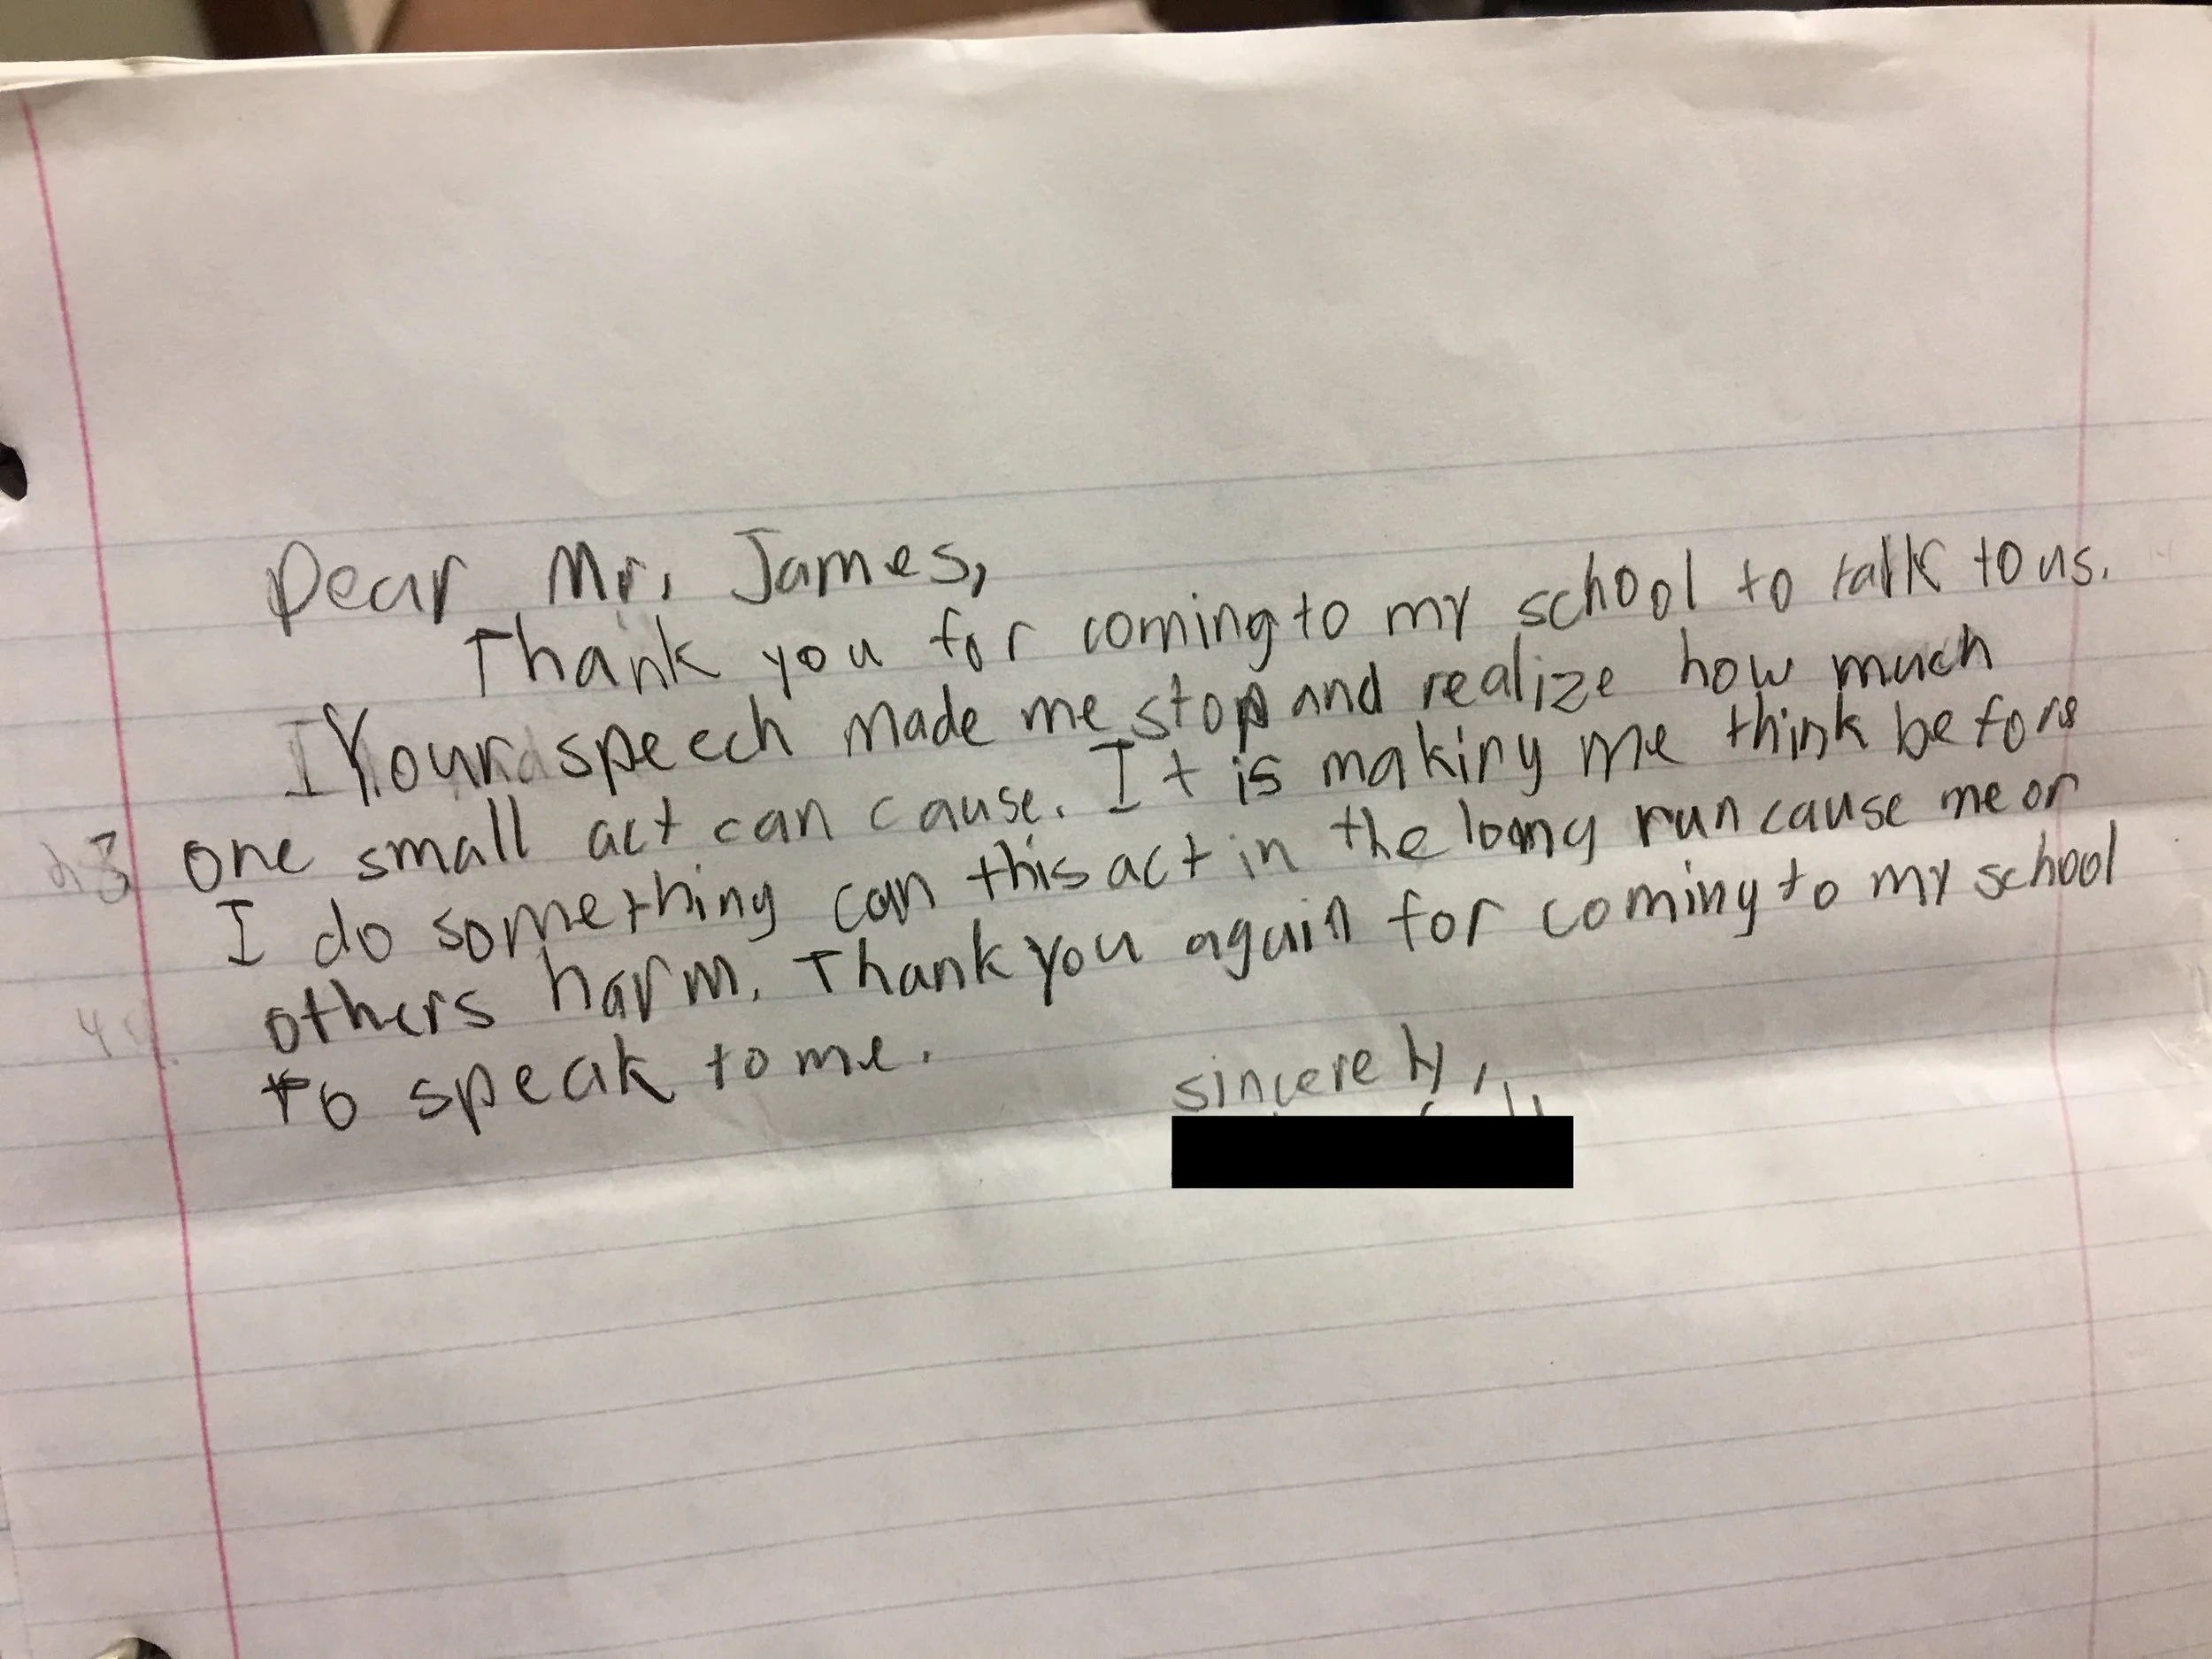 Dear Mr. James,
Thank you for coming to my school to talk to us.
I Your speech made me stop and realize how much
one small act can cause. It is making me think before
I do something can this act in the long run cause me or
others harm. Thank you again for coming to my school
to speak to me.
sincerely,